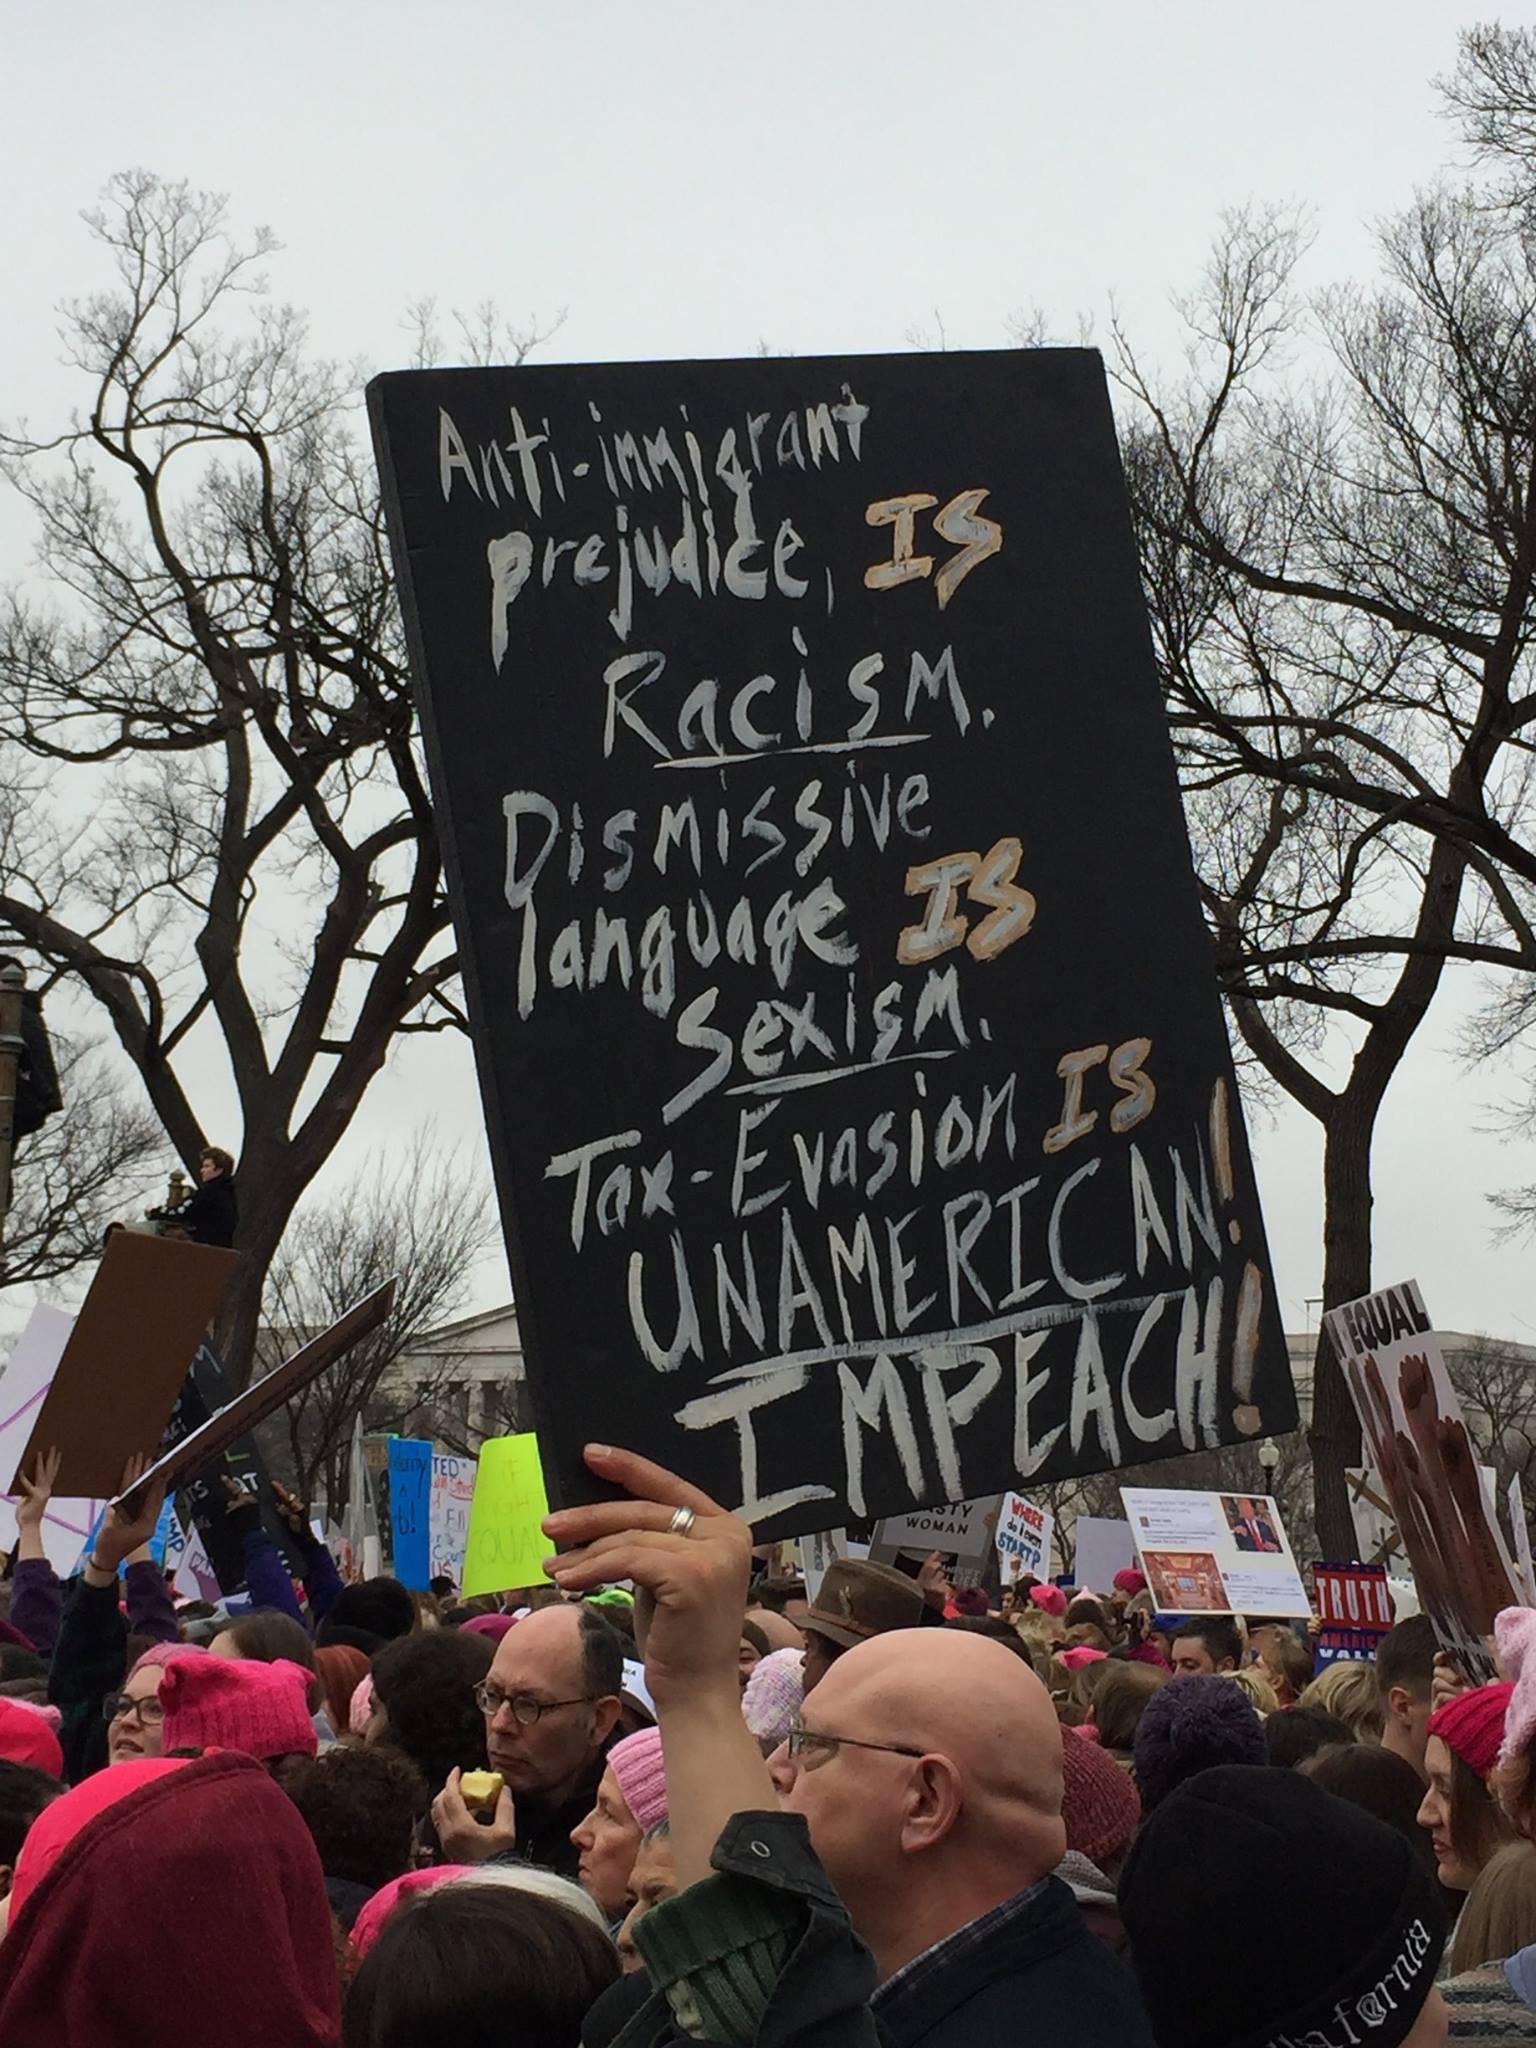 Anti-immigrant
prejudice, IS
Racism.
Dismissive
language IS
Sexism.
Tax-Evasion IS
UNAMERICAN!
IMPEACH!
EQUAL
WOMAN
WHERE
do i even
START?
TRUTH
EQUAL
fornia